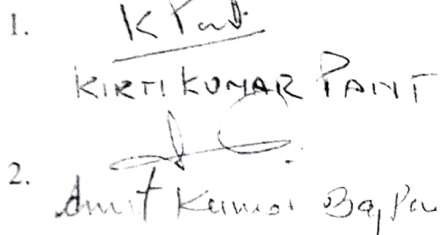 1. K Pant
KIRTI KUMAR PANT
2. Amit Kumar